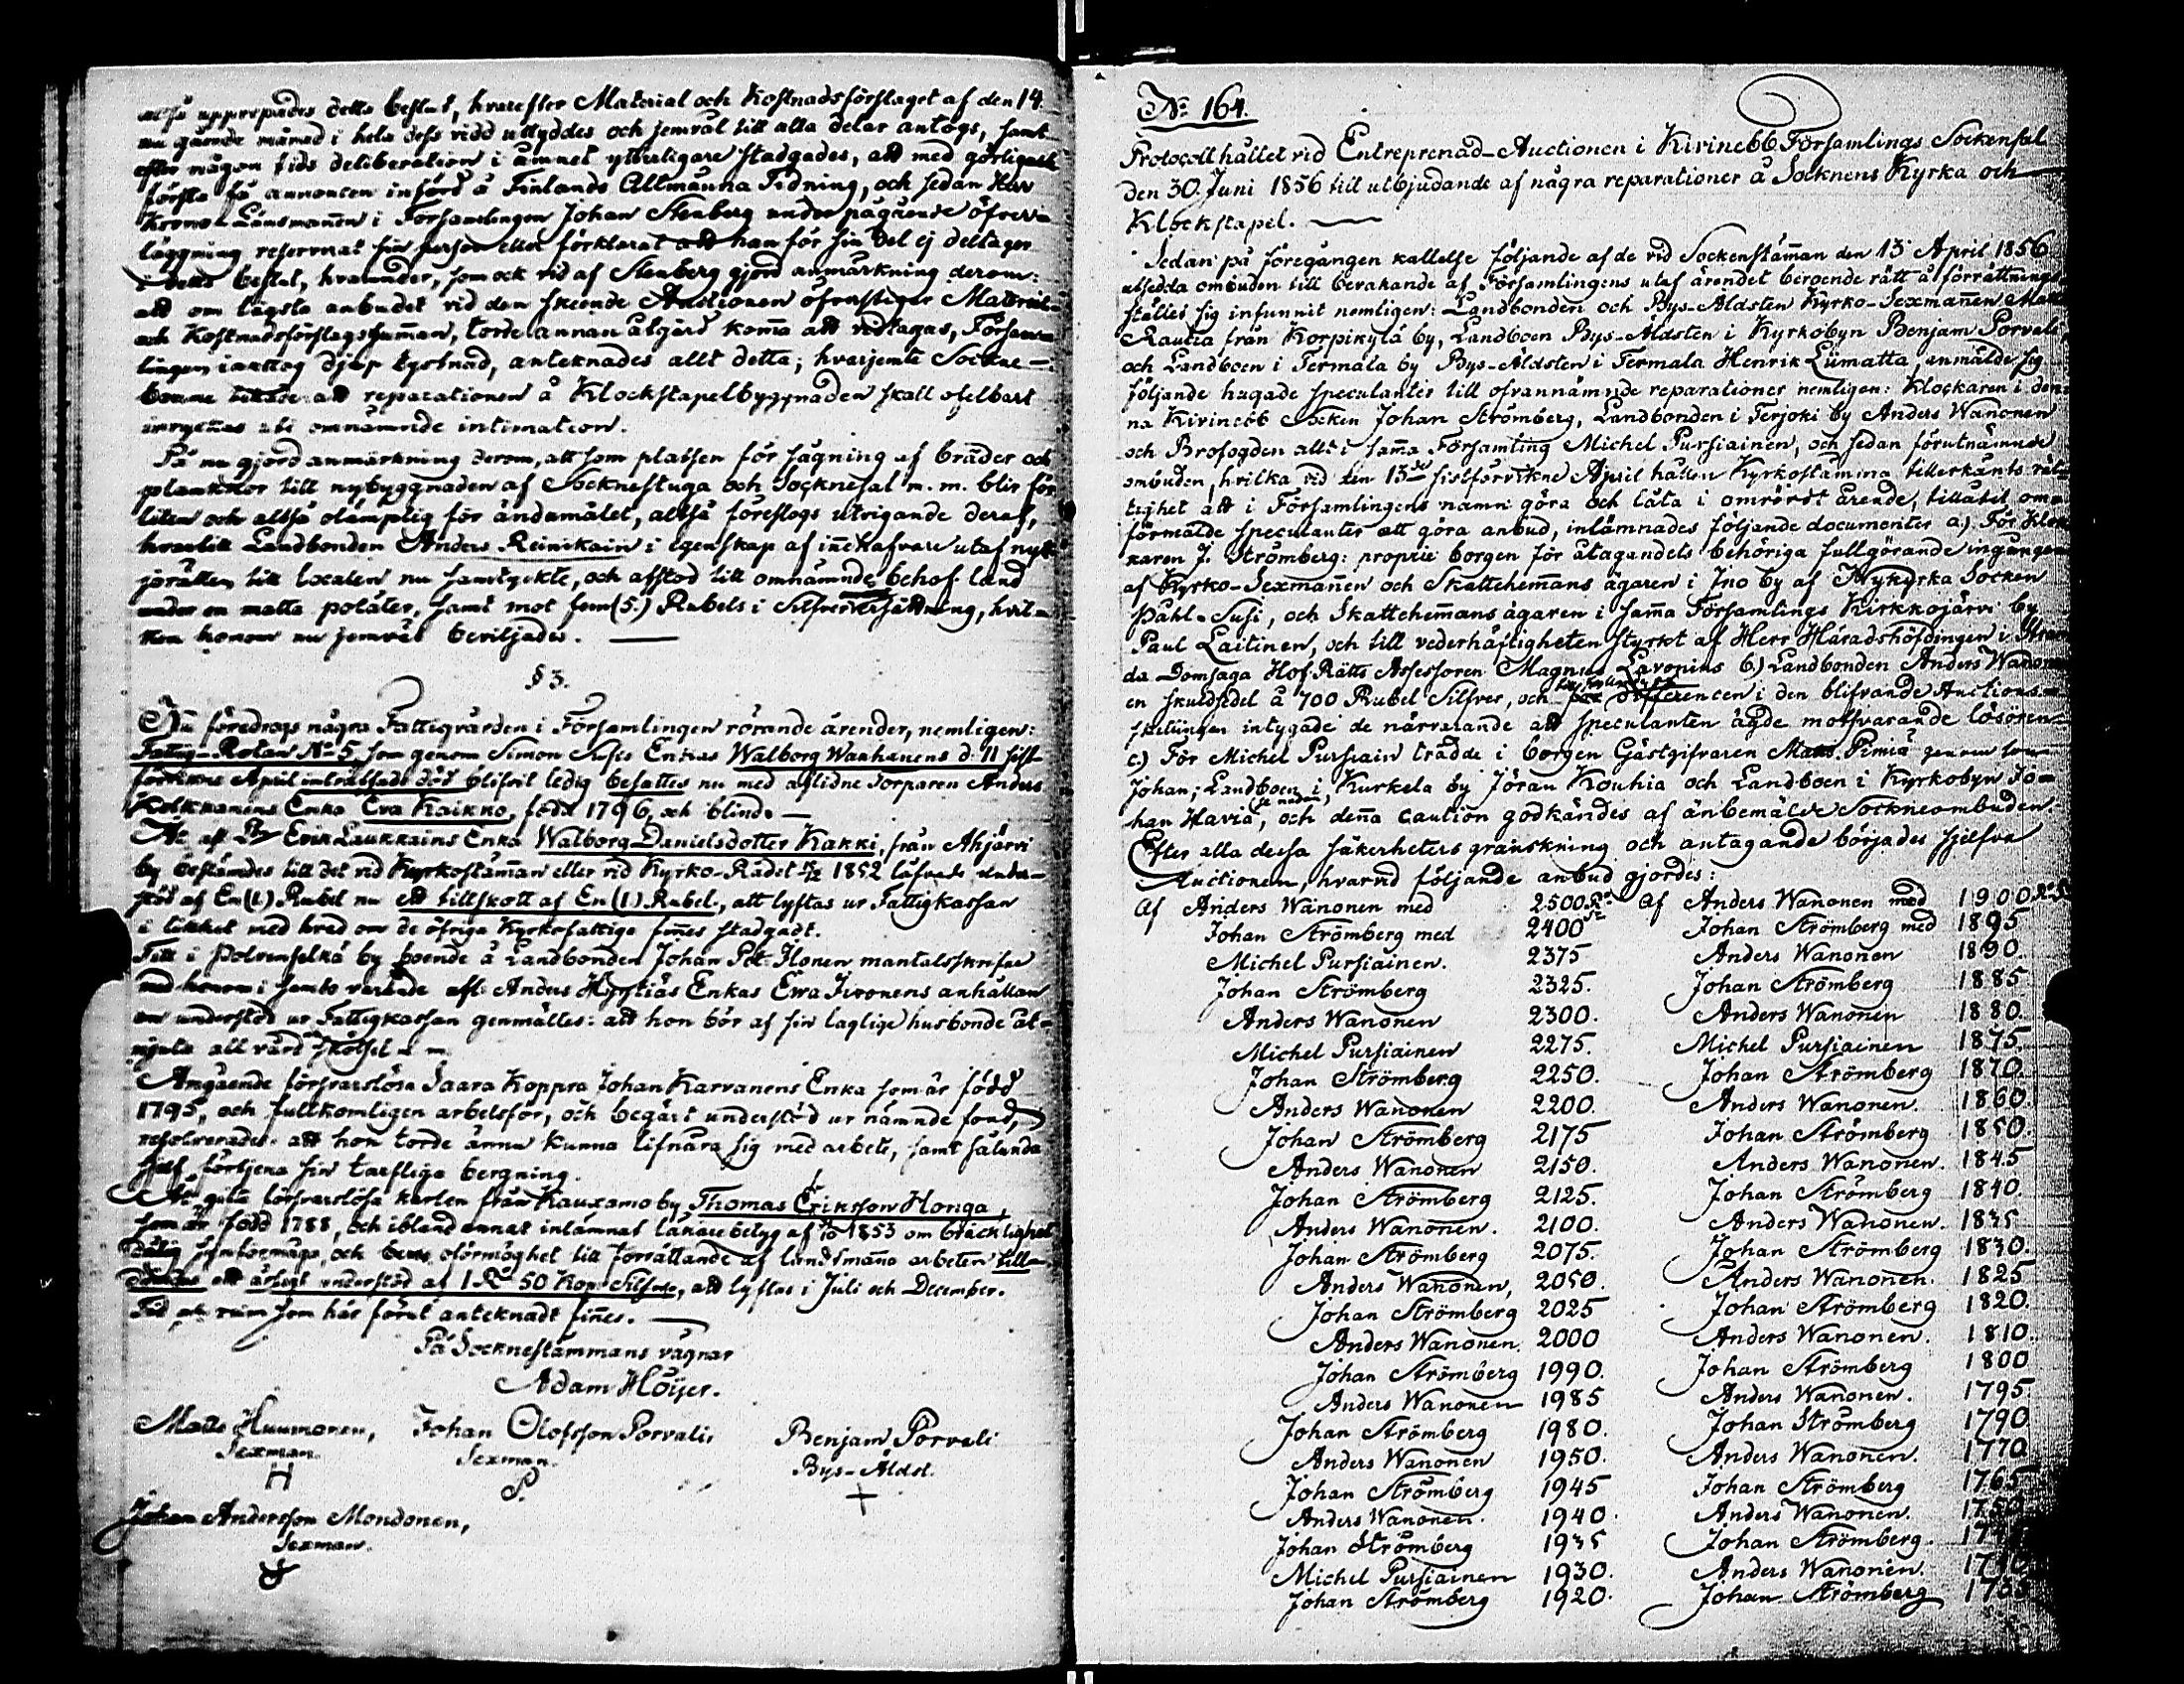 upprepades detta beslut, hvarefter Material och Kostnadsförslaget af den 14.
nu gående månad i hela dess vidd uttyddes och jemväl till alla delar antogs, samt
efter någon tids deliberation i ämnet ytterligare stadgades, att med görligaste
första få annoncen införd å Finlands Allmänna Tidning, och sedan Herr
Krono-Länsmannen i Församlingen Johan Stenberg under pågående öfver-
läggning reserverat sin person eller förklarat att han för sin del ej deltager
i detta beslut, hvarunder, som ock vid af Stenberg gjord anmärkning derom:
att om lägsta anbudet vid den skeende Auctionen öfverstiger Material-
och Kostnadsförslagssumman, torde annan åtgärd komma att vidtagas, Församm-
lingen iakttog djup tystnad, anteknades allt detta; hvarjemte Sockne-
boerne att reparationen å Klockstapelbyggnaden skall ofelbart
i omnämnde intimation.
På nu gjord anmärkning derom, att som platsen för sågning af bräder och
plankkor till nybyggnaden af Socknestuga och Socknesal m. m. blir för
liten och altså olämplig för ändamålet, altså föreslogs utvigande deraf,
hvartill Landbonden Anders Reinikain i egenskap af innehafvare utaf nytt-
jorätten till localen nu samtyckte, och afstod till omnämnde behof land
under en matta potäter, samt mot fem (5.) Rubels i Silfver ersättning, hvil-
ken honom nu jemväl beviljades.
§ 3.
Nu föredrogs några Fattigvården i Församlingen rörande ärender, nemligen:
Fattig-Rotan No 5, som genom Simon Enkas Walborg Wanhanens d. 11 sist-
förvikne April inträffade död blifvit ledig besattes nu med aflidne Torparen Anders
Enka Eva Kaikko, född 1796, och blind.
At afl. Erik Laukkains Enka Walborg Danielsdotter Kakki, från Ahjärvi
by bestämdes till det vid Kyrkostämman eller vid Kyrko-Rådet 1852 låfvade under-
stöd af En (1.) Rubel nu ett tillskott af En (1.) Rubel, att lyftas ur Fattigkassan
i likhet med hvad om de öfriga Kyrkofattige finnes stadgadt.
Till i Polvenselkä by boende å Landbonden Johan Pet. Ilonen mantalsskrifne
med honom i samto varande afl. Anders Hyytiäs Enkas Ewa Iivonens anhållan
om understöd ur Fattigkassan genmältes: att hon bör af sin laglige husbonde åt-
njuta all vård skötsel
Angående försvarslösa Saara Koppra Johan Karvanens Enka som är född
1795, och fullkomligen arbetsför, och begärt understöd ur nämnde fond,
resolverades: att hon torde ännu kunna lifnära sig med arbete, samt sålunda
sjelf förtjena sin tarfliga bergning.
At gula försvarslösa karlen från Kauxamo by Thomas Eriksson Honga,
som är född 1788, och ibland annat inlämnat läkarebetyg af 1853 om bräcklighet
dålig synförmåga, och oförmöghet till förrättande af landtmanna arbeten till-
ett årligt understöd af 1 R. 50 Kop. Silfver, att lyftas i Juli och December.
Tid och rum som här förut anteknadt finnes.
På Socknestämmans vägnar
Adam Höijer.
Matts Huumonen, Johan Olofsson Porvali, Benjam Porvali
Sexman. Sexman. Bys-Äldst.
H P. +
Johan Andersson Mondonen,
Sexman.
No 164.
Protocoll hållet vid Entreprenad-Auctionen i Kirinebb Församlings Sockensal
den 30. Juni 1856 till utbjudande af några reparationer å Socknens Kyrka och
Klockstapel.
Sedan på föregången kallelse följande af de vid Sockenstämman den 13 April 1856
utsedda ombuden till bevakande af Församlingens utaf ärendet beroende rätt å förrättnings
stället sig infunnit nemligen: Landbonden och Bys-Äldsten Kyrko-Sexmannen Matts
Rautia från Korpikylä by, Landboen Bys-Äldsten i Kyrkobyn Benjam Porvali
och Landboen i Termala by Bys-Äldsten i Termala Henrik Liimatta, anmälde sig
följande hugade speculanter till ofvannämnde reparationer nemligen: Klockaren i den-
na Kirinebb Socken Johan Strömberg, Landbonden i Terjoki by Anders Wanonen
och Brofogden allt i samma Församling Michel Pursiainen, och sedan förutnämnde
ombuden, hvilka vid den 13de sistförvikne April hållen Kyrkostämma tillerkänts rät-
tighet att i Församlingens namn göra och låta i omrördt ärende, tillåtit om-
förmälde speculanter att göra anbud, inlämnades följande documenter a.) För Kloc-
karen J. Strömberg: proprie borgen för åtagandets behöriga fullgörande ingången
af Kyrko-Sexmannen och Skattehemmans ägaren i Ino by af Nykyrka Socken
Påhl Susi, och Skattehemmans ägaren i samma Församlings Kirkkojärvi by
Paul Laitinen, och till vederhäftigheten styrkt af Herr Häradshöfdingen i Stran-
da Domsaga Hof-Rätts Assessoren Magnus Lavonius b.) Landbonden Anders Wanonen
en skuldsedel å 700 Rubel Silfver, och differencen i den blifvande Auctions-
skillingen intygade de närvarande att speculanten ägde motsvarande lösören-
c.) För Michel Pursiain trädde i borgen Gästgifvaren Matts Pimiä genom son
Johan; Landboen i Kurkela by Jöran Kouhia och Landboen i Kyrkobyn Jo-
han Havia, och denna caution godkändes af änbemälde Sockneombuden.
Efter alla dessa säkerheters granskning och antagande börjades sjelfva
Auctionen, hvarvid följande anbud gjordes:
Af Anders Wänonen med 2500 R. Sr Af Anders Wanonen med 1900 R. Sr
Johan Strömberg med 2400 Johan Strömberg med 1895
Michel Pursiainen. 2375 Anders Wanonen 1890.
Johan Strömberg 2325. Johan Strömberg 1885
Anders Wanonen 2300. Anders Wanonen 1880.
Michel Pursiainen 2275. Michel Pursiainen 1875.
Johan Strömberg 2250. Johan Strömberg 1870.
Anders Wanonen 2200. Anders Wanonen. 1860.
Johan Strömberg 2175 Johan Strömberg 1850.
Anders Wanonen 2150. Anders Wanonen. 1845
Johan Strömberg 2125. Johan Strömberg 1840.
Anders Wanonen. 2100. Anders Wanonen. 1835
Johan Strömberg 2075. Johan Strömberg 1830.
Anders Wanonen, 2050. Anders Wanonen. 1825
Johan Strömberg 2025 Johan Strömberg 1820.
Anders Wanonen. 2000 Anders Wanonen. 1810.
Johan Strömberg 1990. Johan Strömberg 1800
Anders Wanonen 1985 Anders Wanonen. 1795
Johan Strömberg 1980. Johan Strömberg 1790
Anders Wanonen 1950. Anders Wanonen. 1770
Johan Strömberg 1945 Johan Strömberg 1765
Anders Wanonen. 1940. Anders Wanonen. 1750
Johan Strömberg 1935 Johan Strömberg.
Michel Pursiainen 1930. Anders Wanonen.
Johan Strömberg 1920. Johan Strömberg